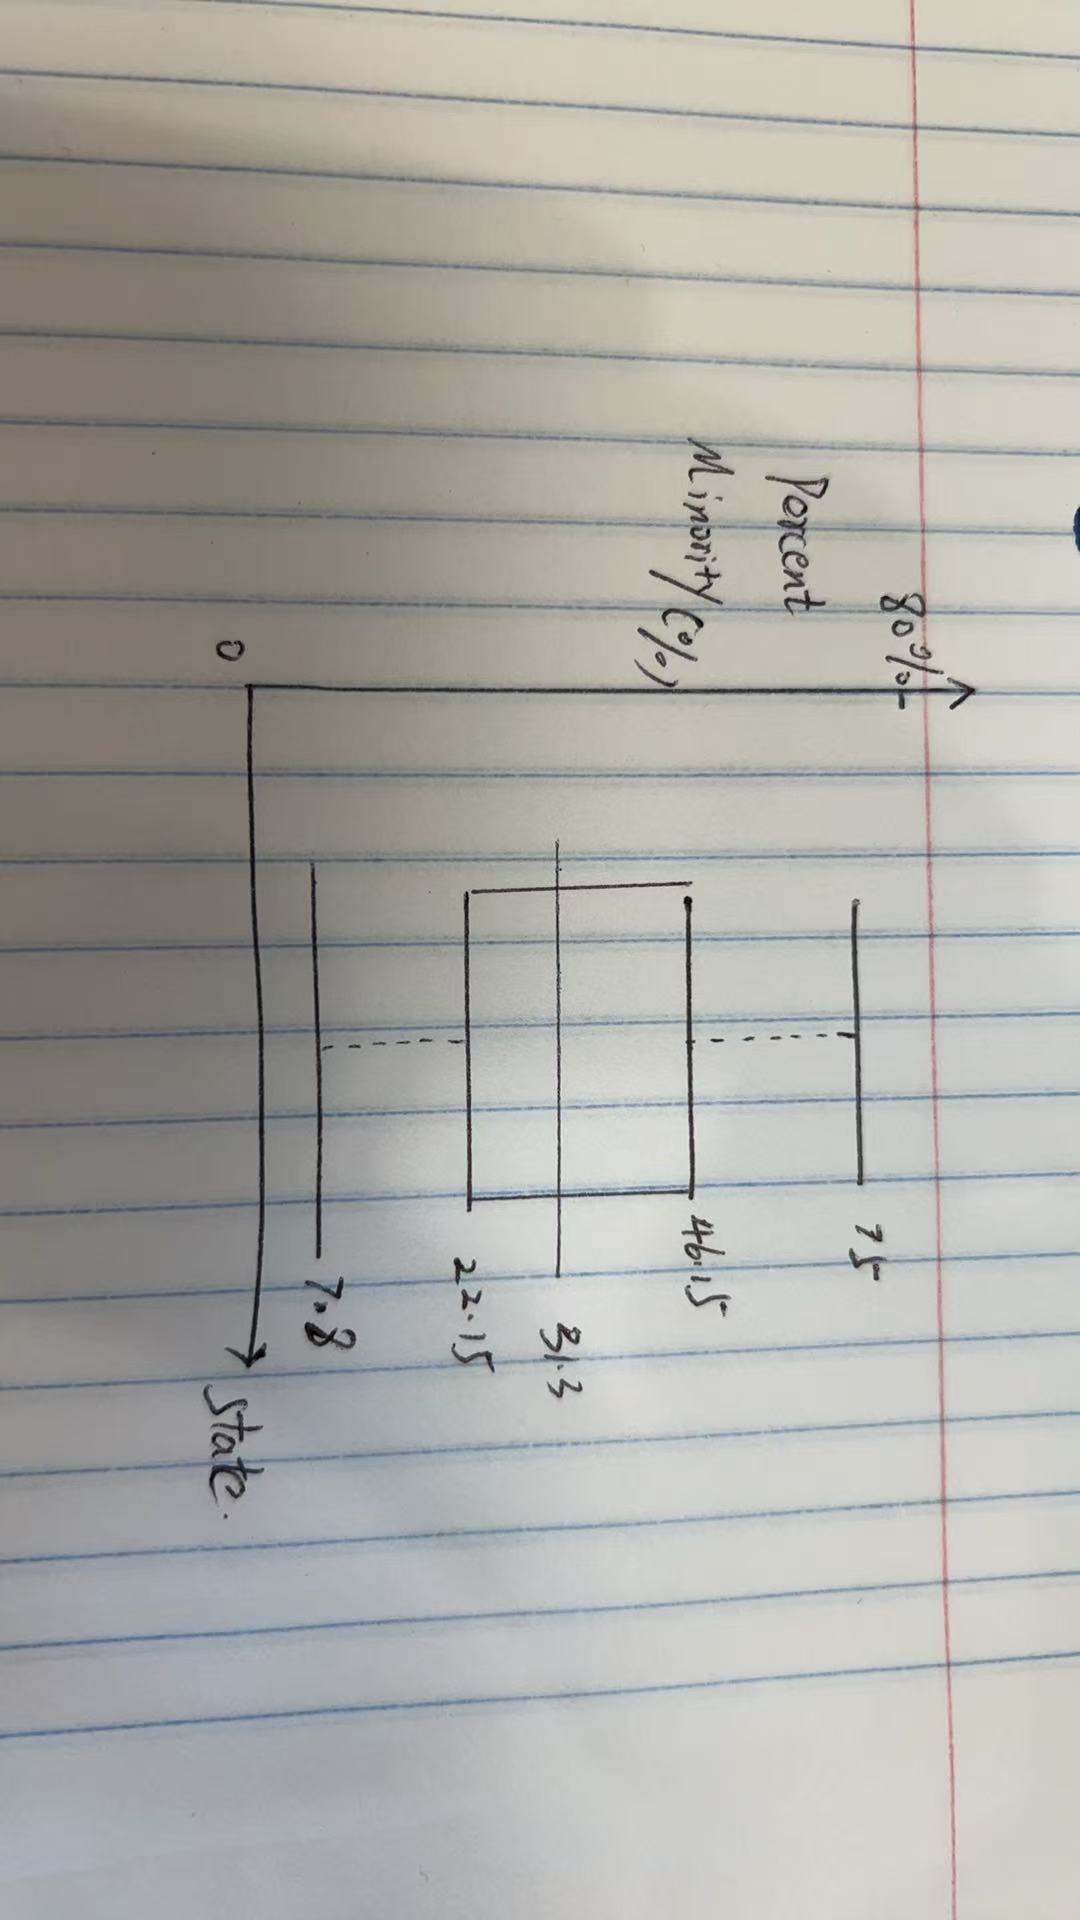 80%
Percent
Minority (%)
75
46.15
31.3
22.15
7.8
0
State.